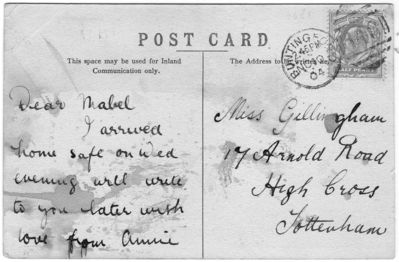 POST CARD
This space may be used for Inland
Communication only.
The Address to
Dear Mabel
I arrived
home safe on Wed
evening will write
to you later with
love from Annie
BUNTINGFORD
2.45 PM
04
Miss Gillingham
17 Arnold Road
High Cross
Tottenham